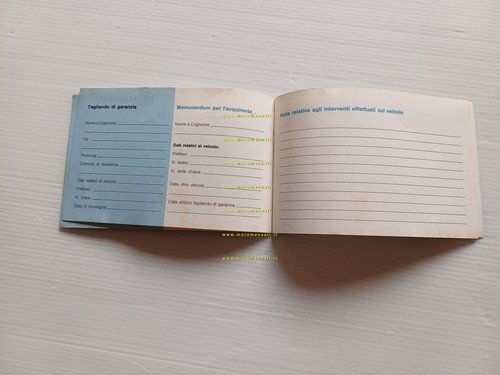 Tagliando di garanzia
Nome e Cognome
Via
Provincia
Comune di residenza
Dati relativi al veicolo:
Prefisso
N. telaio
Data di consegna
Memorandum per l'acquirente
Nome e Cognome
Dati relativi al veicolo:
Prefisso
N. telaio
N. della chiave
Data ritiro veicolo
Data utilizzo tagliando di garanzia
Note relative agli interventi effettuati sul veicolo
www.motomanuali.it
www.motomanuali.it
www.motomanuali.it
www.motomanuali.it
www.motomanuali.it
www.motomanuali.it
www.motomanuali.it